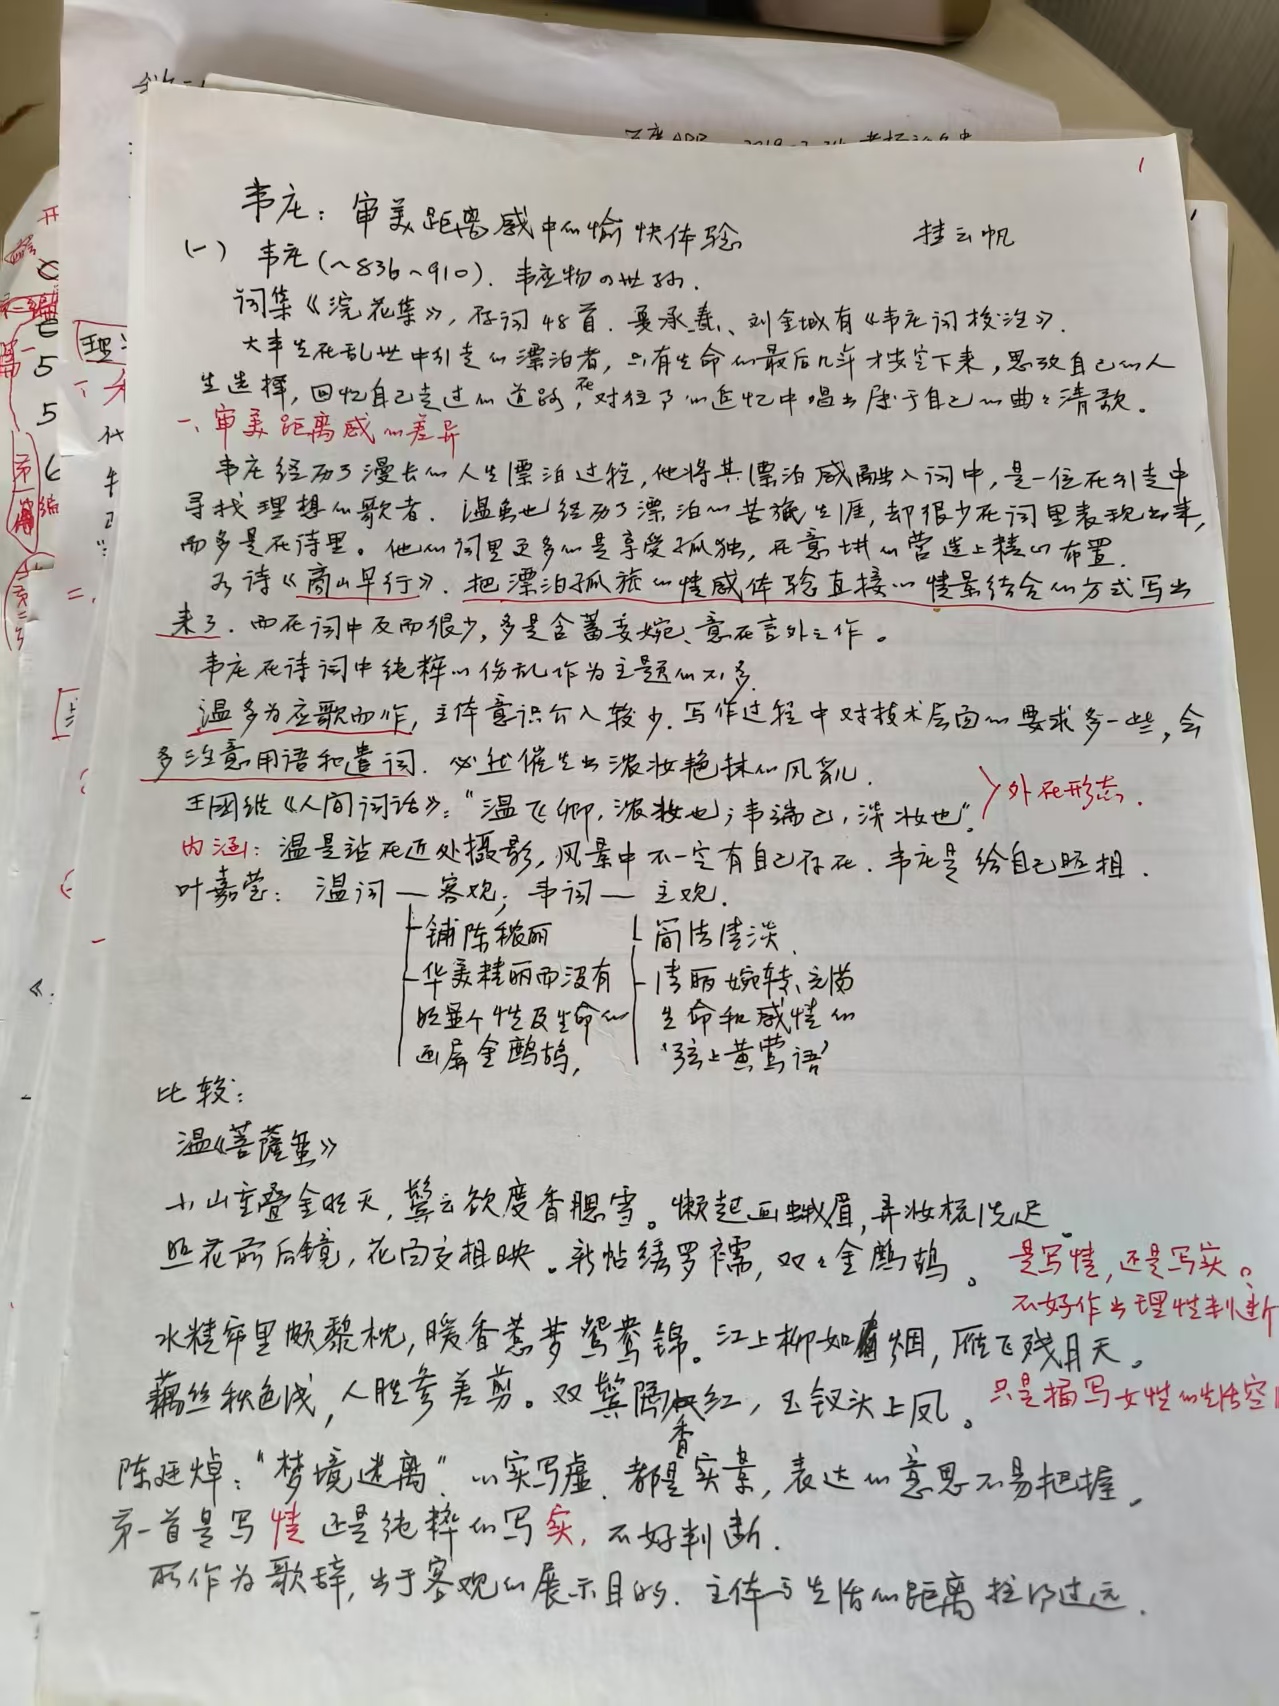 1
韦庄：审美距离感中的愉快体验 挂云帆
(一) 韦庄(~836~910). 韦应物の世孙.
词集《浣花集》, 存词48首. 夏承焘、刘金城有《韦庄词校注》.
大半生在乱世中行走的漂泊者, 只有生命的最后几年才安定下来, 思考自己的人
生选择, 回忆自己走过的道路, 在对往事的追忆中唱出属于自己的曲曲清歌。
一、审美距离感的差异
韦庄经历了漫长的人生漂泊过程, 他将其漂泊感融入词中, 是一位在行走中
寻找理想的歌者. 温虽也经历了漂泊的苦旅生涯, 却很少在词里表现出来,
而多是在诗里。他的词里更多的是享受孤独, 在意境的营造上精心布置.
如诗《商山早行》. 把漂泊孤旅的情感体验直接以情景结合的方式写出
来了. 而在词中反而很少, 多是含蓄委婉、意在言外之作。
韦庄在诗词中纯粹以伤乱作为主题的不多.
温多为应歌而作, 主体意识介入较少. 写作过程中对技术层面的要求多一些, 会
多注意用语和遣词. 必然催生出浓妆艳抹的风貌.
王国维《人间词话》: “温飞卿, 浓妆也; 韦端己, 淡妆也”. 外在形态.
内涵: 温是站在近处摄影, 风景中不一定有自己存在. 韦庄是给自己照相.
叶嘉莹: 温词 — 客观; 韦词 — 主观.
铺陈秾丽 简洁清淡.
华美精丽而没有 清丽婉转、充满
明显个性及生命的 生命和感情的
画屏金鹧鸪, ‘弦上黄莺语’
比较:
温《菩萨蛮》
小山重叠金明灭, 鬓云欲度香腮雪。懒起画蛾眉, 弄妆梳洗迟。
照花前后镜, 花面交相映。新帖绣罗襦, 双双金鹧鸪。 是写情, 还是写实。
不好作出理性判断
水精帘里颇黎枕, 暖香惹梦鸳鸯锦。江上柳如烟, 雁飞残月天。
藕丝秋色浅, 人胜参差剪。双鬓隔香红, 玉钗头上凤。 只是描写女性的生活空
陈廷焯: “梦境迷离” 以实写虚. 都是实景, 表达的意思不易把握,
第一首是写情还是纯粹的写实, 不好判断.
所作为歌辞, 出于客观的展示目的. 主体与生活的距离拉得过远.